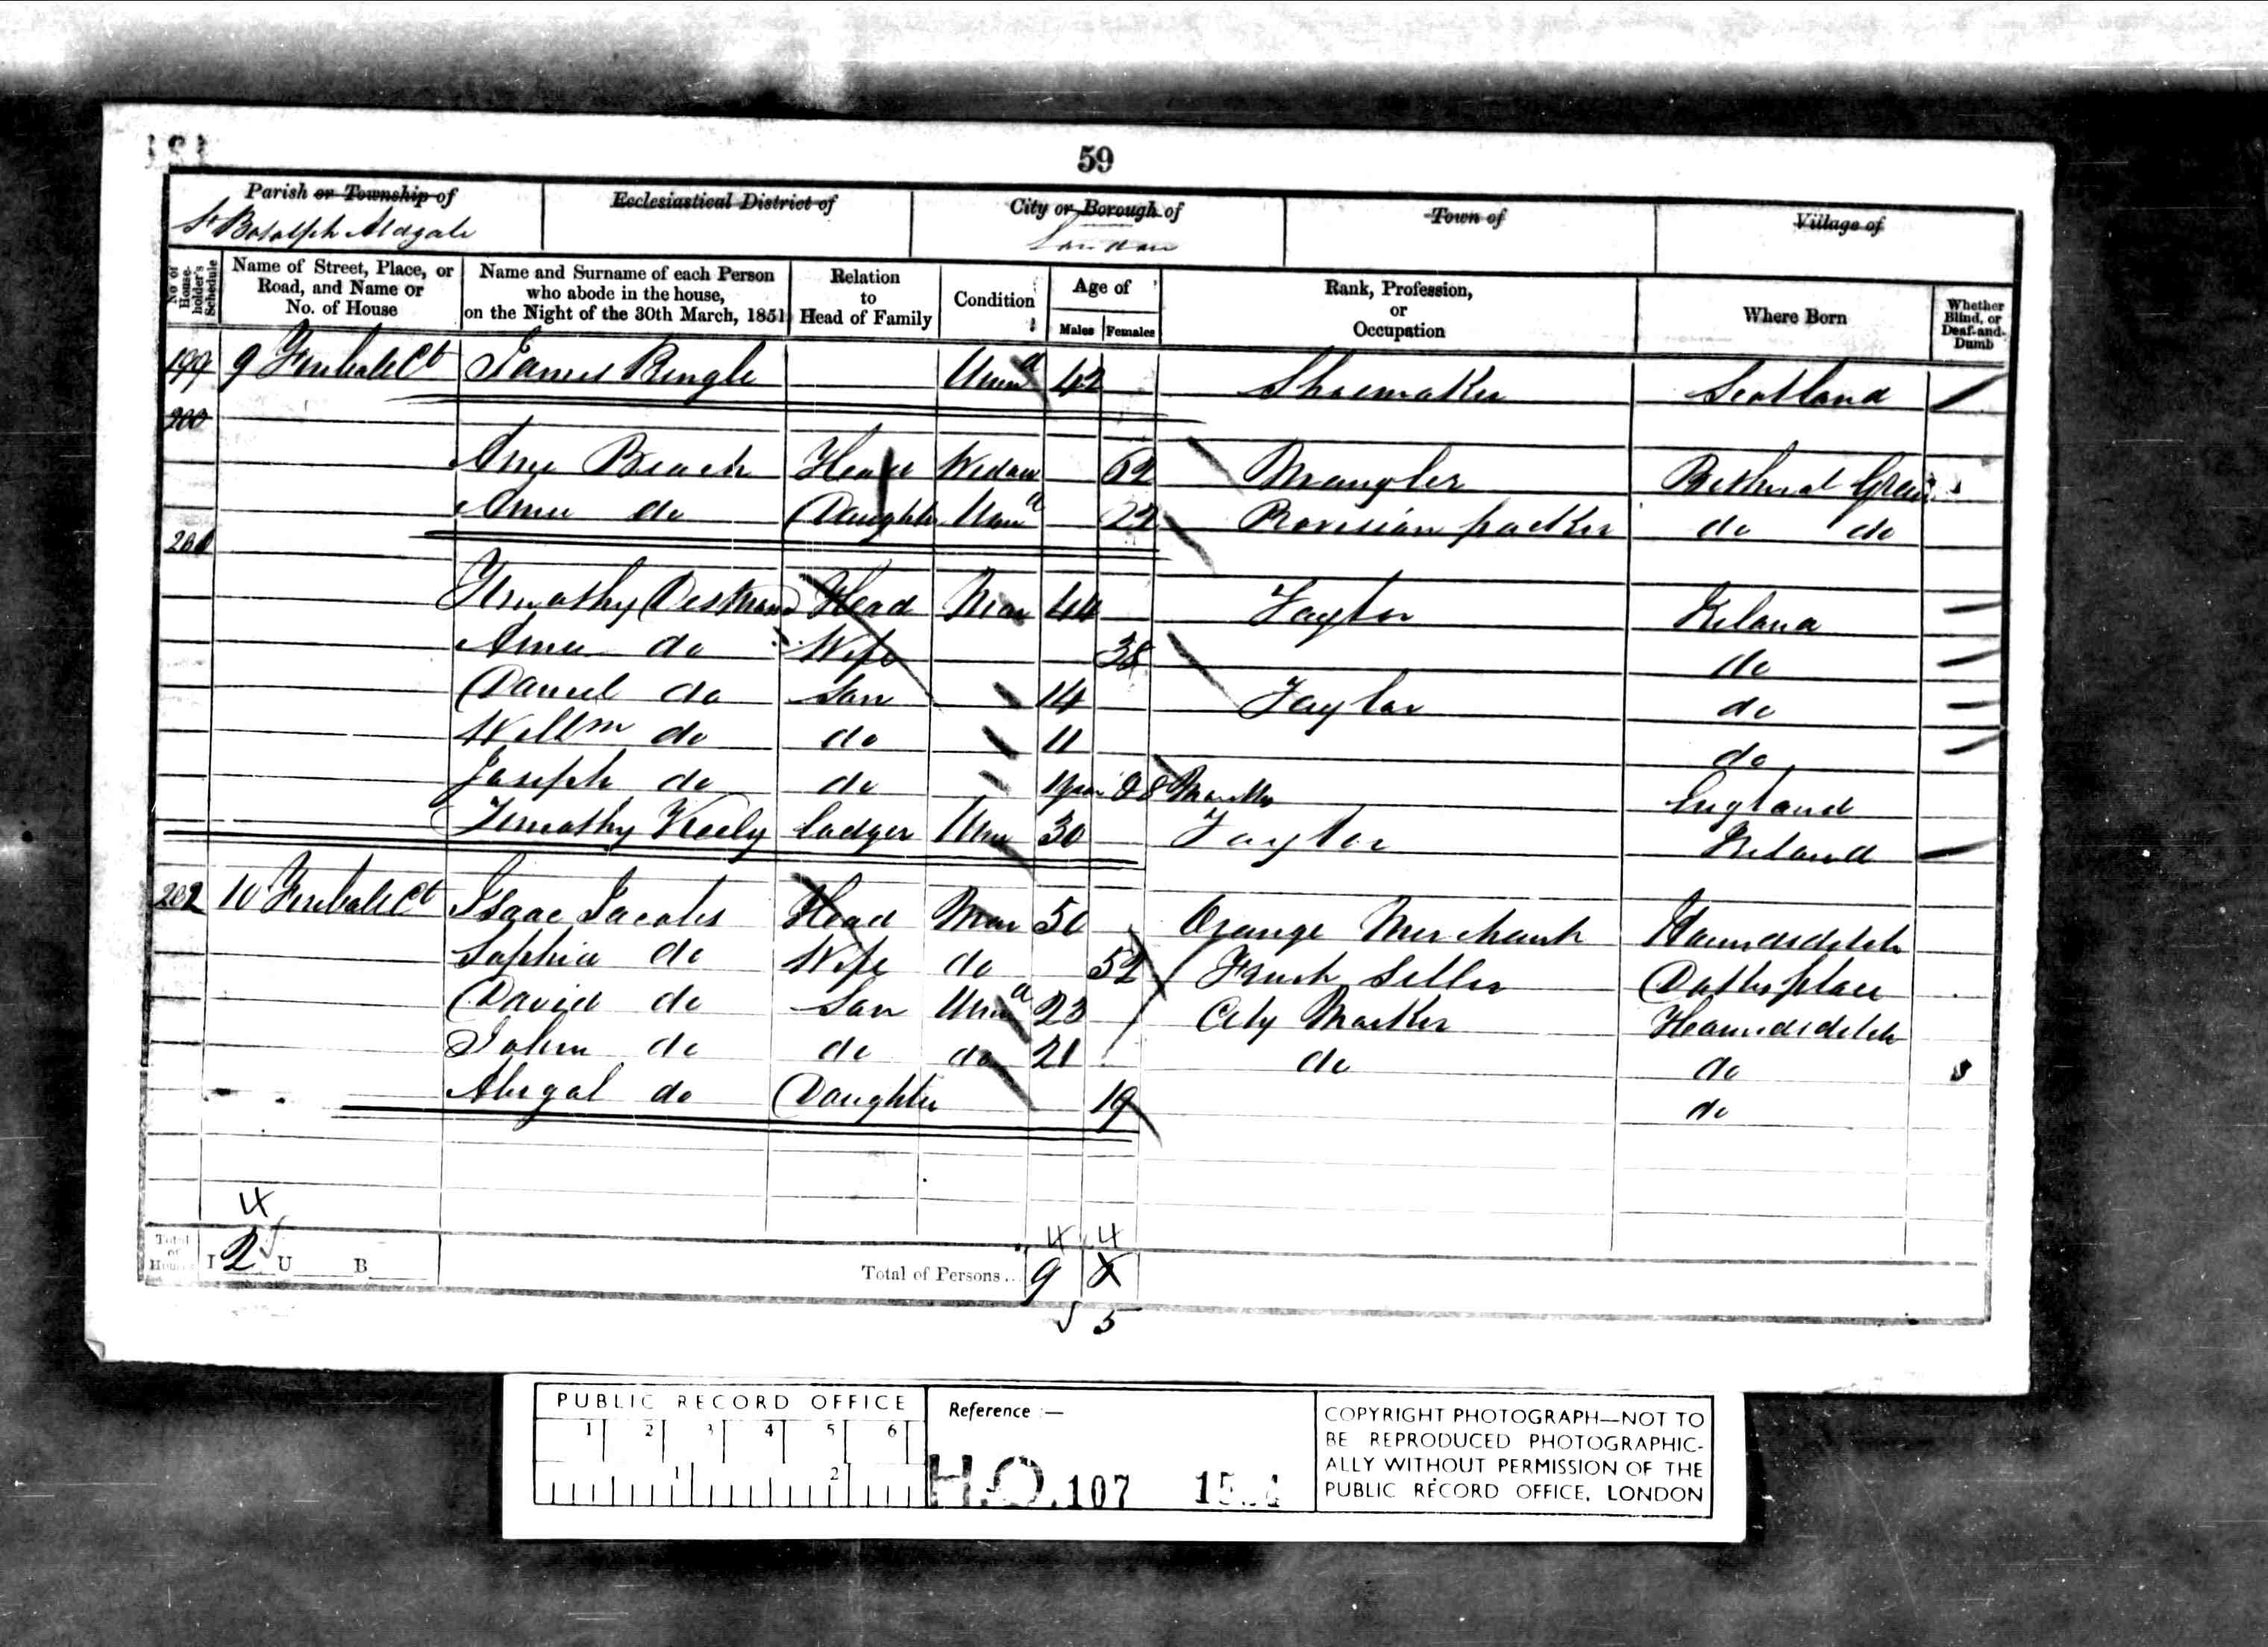 59
Parish or Township of
Ecclesiastical District of
City or Borough of
Town of
Village of
St Botolph Aldgate
London
No of House-holder's Schedule
Name of Street, Place, or Road, and Name or No. of House
Name and Surname of each Person who abode in the house, on the Night of the 30th March, 1851
Relation to Head of Family
Condition
Age of
Males
Females
Rank, Profession, or Occupation
Where Born
Whether Blind, or Deaf-and-Dumb
199 9 Ct James Unmd 42 Shoemaker Scotland
200
Head Widow 62 Mangler Bethnal Green
do Daughter Unmd 22 Provision packer do do
201
Timothy Head Mar 44 Taylor Ireland
do Wife 38 do
Daniel do Son 14 Taylor do
Willm do do 11 do
Joseph do do 1 year 8 Months England
Timothy Keely Lodger Unm 30 Taylor Ireland
202 10 Ct Isaac Jacobs Head Mar 50 Orange Merchant Houndsditch
Sophia do Wife do 52 Fruit Seller
David do Son Unmd 23 Houndsditch
John do do do 21 do do
Abigal do Daughter 19 do
4
4 4
Total of Houses I 2 U B
Total of Persons... 9
5
PUBLIC RECORD OFFICE
1 2 3 4 5 6
1 2
Reference :—
H.O. 107
COPYRIGHT PHOTOGRAPH—NOT TO
BE REPRODUCED PHOTOGRAPHIC-
ALLY WITHOUT PERMISSION OF THE
PUBLIC RECORD OFFICE, LONDON